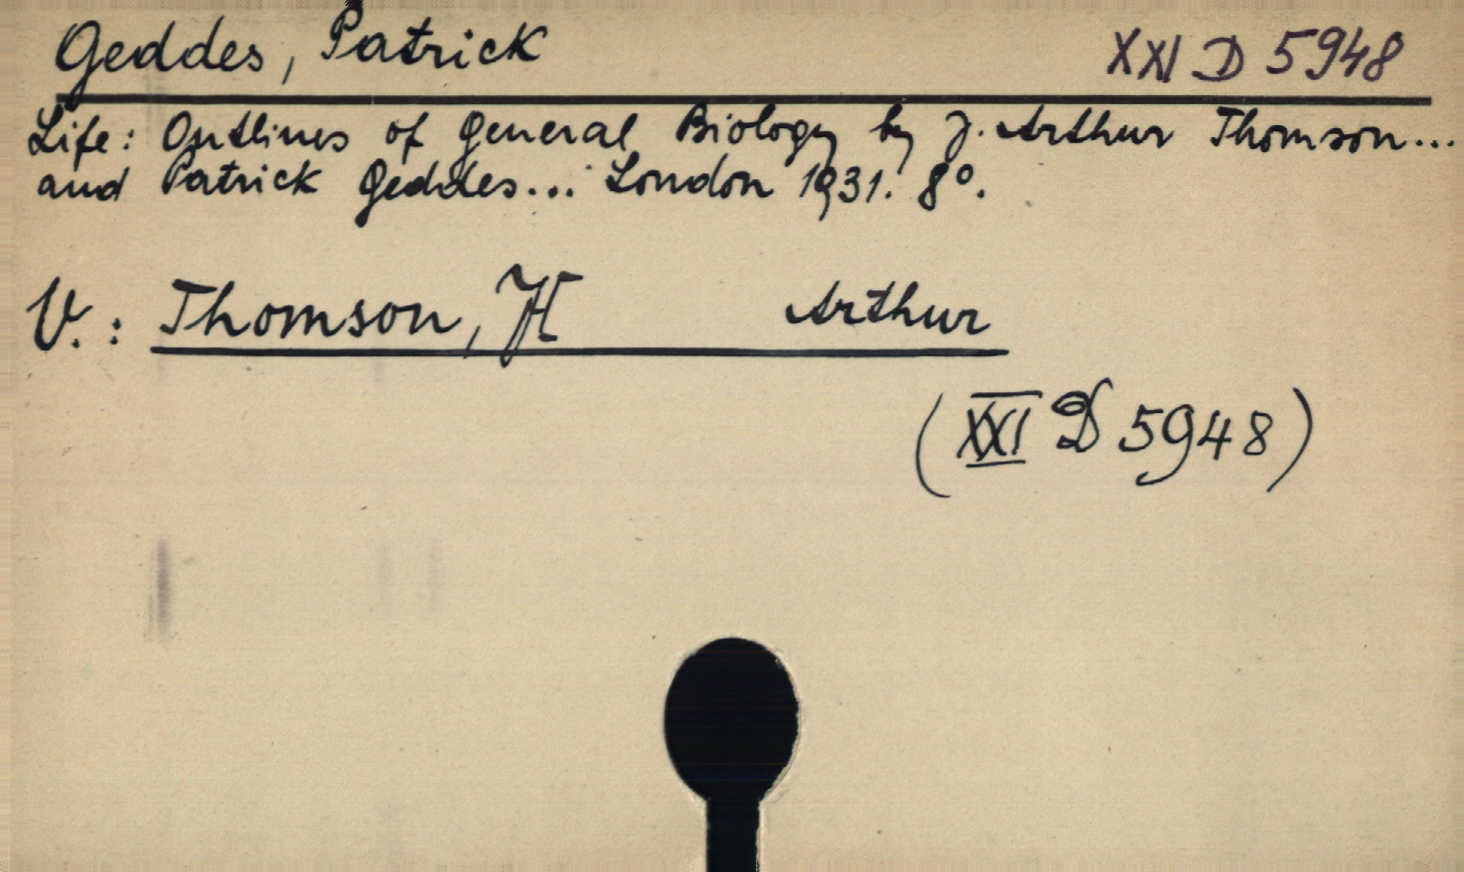 Geddes, Patrick XXI D 5948
Life: Outlines of general Biology by J. Arthur Thomson...
and Patrick Geddes... London 1931. 8º.
V.: Thomson, H Arthur
(XXI D 5948)